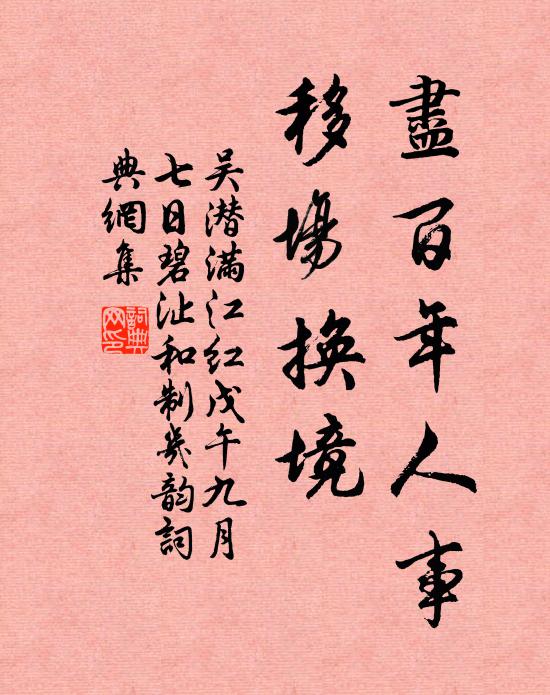 盡百年人事
移場換境
吴潜滿江红戊午九月
七日碧沚和制幾韵詞
典網集
詞典网印